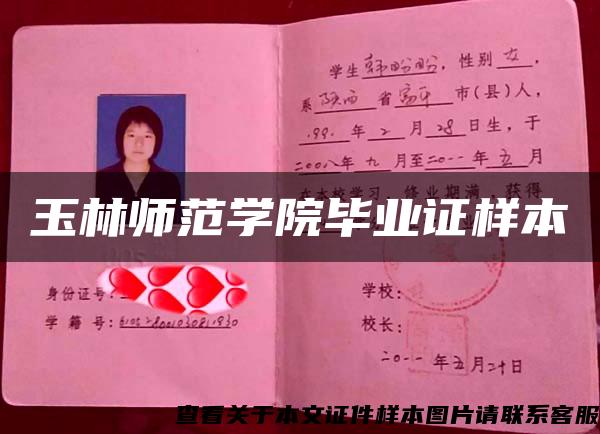 身份证号：
学 籍 号：
学生韩盼盼，性别女，
系陕西省富平市（县）人，
199 年2月28日生，于
二00八年九月至二0一一年五月
在本校学习，修业期满，获得
玉林师范学院毕业证样本
学校：
校长：
二0一一年五月二十日
查看关于本文证件样本图片请联系客服